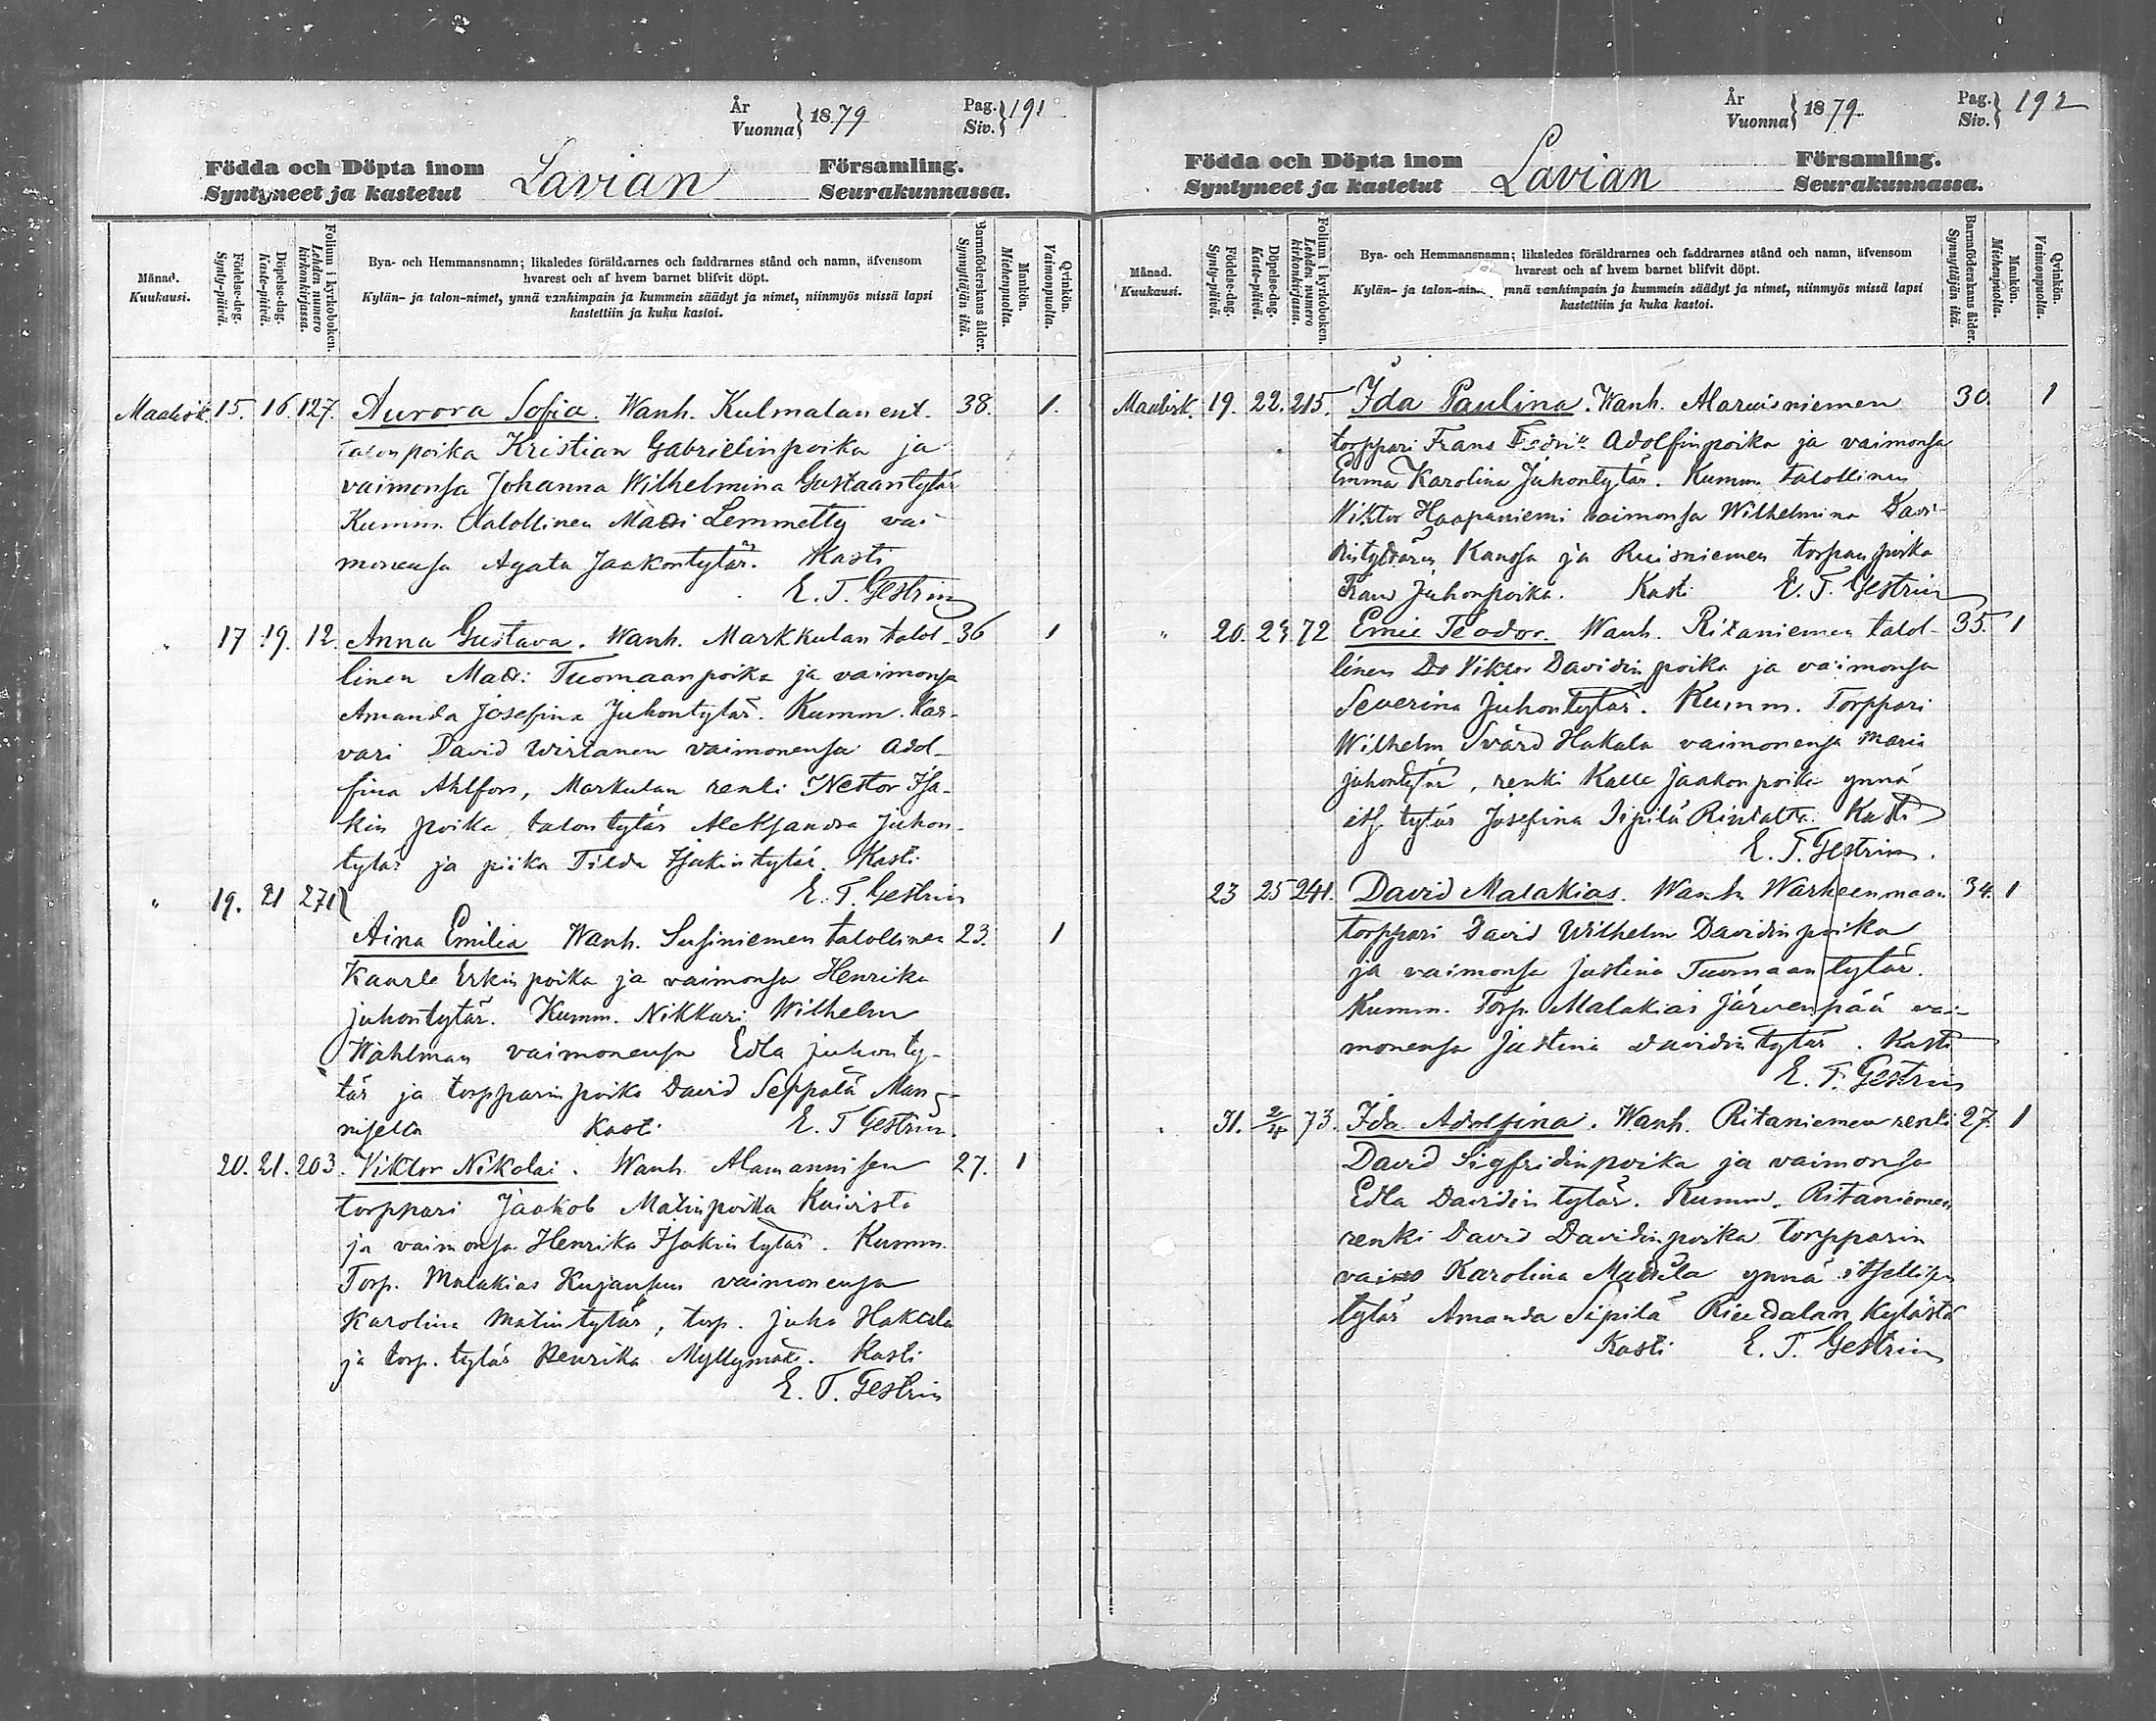 År
Vuonna } 1879
Pag.
Siv. } 191
Födda och Döpta inom
Syntyneet ja kastetut
Lavian
Församling.
Seurakunnassa.
Månad.
Kuukausi.
Födelse-dag.
Synty-päivä.
Döpelse-dag.
Kaste-päivä.
Folium i kyrkoboken.
Lehden numero kirkonkirjassa.
Bya- och Hemmansnamn; likaledes föräldrarnes och faddrarnes stånd och namn, äfvensom
hvarest och af hvem barnet blifvit döpt.
Kylän- ja talon-nimet, ynnä vanhimpain ja kummein säädyt ja nimet, niinmyös missä lapsi
kastettiin ja kuka kastoi.
Barnaföderskans ålder.
Synnyttäjän ikä.
Mankön.
Miehenpuolta.
Qvinkön.
Vaimonpuolta.
Maalisk. 15. 16. 127. Aurora Sofia. Wanh. Kulmalan ent. 38. 1.
talonpoika Kristian Gabrielinpoika ja
vaimonsa Johanna Wilhelmina Gustaantytär
Kumm. talollinen Matti Lemmetty vai-
monensa Agata Jaakontytär. Kasti
E. T. Gestrin
" 17 19. 12. Anna Gustava. Wanh. Markkulan talol- 36 1
linen Matti Tuomaanpoika ja vaimonsa
Amanda Josefina Juhontytär. Kumm. Kar-
vari David Wirtanen vaimonensa Adol-
fina Ahlfors, Markulan renki Nestor Isa-
kin poika, talontytär Aleksandra Juhon-
tytär ja piika Tilda Isakintytär. Kasti
E. T. Gestrin
" 19. 21 271
Aina Emilia Wanh. Susiniemen talollinen 23. 1
Kaarle Erkinpoika ja vaimonsa Henrika
juhontytär. Kumm. Nikkari Wilhelm
Wahlman vaimonensa Edla juhonty-
tär ja torpparinpoika David Seppälä Man-
niselta Kasti E. T Gestrin.
20. 21. 203. Viktor Nikolai. Wanh. Alamannisen 27. 1
torppari Jaakob Matinpoika Koivisto
ja vaimonsa Henrika Isakintytär. Kumm.
Torp. Malakias Kujansuu vaimonensa
Karolina Matintytär, torp. juha Hakala
ja torp. tytär Henrika Myllymäki. Kasti
E. T. Gestrin
År
Vuonna } 1879.
Pag.
Siv. } 192
Födda och Döpta inom
Syntyneet ja kastetut
Lavian
Församling.
Seurakunnassa.
Månad.
Kuukausi.
Födelse-dag.
Synty-päivä.
Döpelse-dag.
Kaste-päivä.
Folium i kyrkoboken.
Lehden numero kirkonkirjassa.
Bya- och Hemmansnamn; likaledes föräldrarnes och faddrarnes stånd och namn, äfvensom
hvarest och af hvem barnet blifvit döpt.
Kylän- ja talon- ynnä vanhimpain ja kummein säädyt ja nimet, niinmyös missä lapsi
kastettiin ja kuka kastoi.
Barnaföderskans ålder.
Synnyttäjän ikä.
Mankön.
Miehenpuolta.
Qvinkön.
Vaimonpuolta.
Maalisk. 19. 22. 215. Ida Paulina. Wanh. Alaruisniemen 30. 1
torppari Frans Adolfinpoika ja vaimonsa
Emma Karolina Juhontytär. Kumm. talollinen
Viktor Haapaniemi vaimonsa Wilhelmina Davi-
dintyttären Kanssa ja Ruisniemen torpanpoika
Frans Juhonpoika. Kasti E. T. Gestrin
" 20. 23. 72 Emil Teodor. Wanh. Ritaniemen talol- 35. 1
linen Viktor Davidin poika ja vaimonsa
Severina Juhontytär. Kumm. Torppari
Wilhelm Svärd Hakala vaimonensa Maria
juhontytär, renki Kalle Jaakonpoika ynnä
its. tytär Josefina Sipilä Kasti
E. T. Gestrin.
23 25 241. David Malakias. Wanh. Warheenmaan 34. 1
torppari David Wilhelm Davidinpoika
ja vaimonsa Justina Tuomaantytär.
Kumm. Torp. Malakias Järvenpää vai-
monensa Justina Davidintytär. Kasti
E. T. Gestrin
31. 2/4 73. Ida Adolfina. Wanh. Ritaniemen renki 27. 1
David Sigfridinpoika ja vaimonsa
Edla Davidintytär. Kumm. Ritaniemen
renki David Davidinpoika torpparin
vaimo Karolina Mattila ynnä itsellisen
tytär Amanda Sipilä Riudalan Kylästä
Kasti E. T. Gestrin